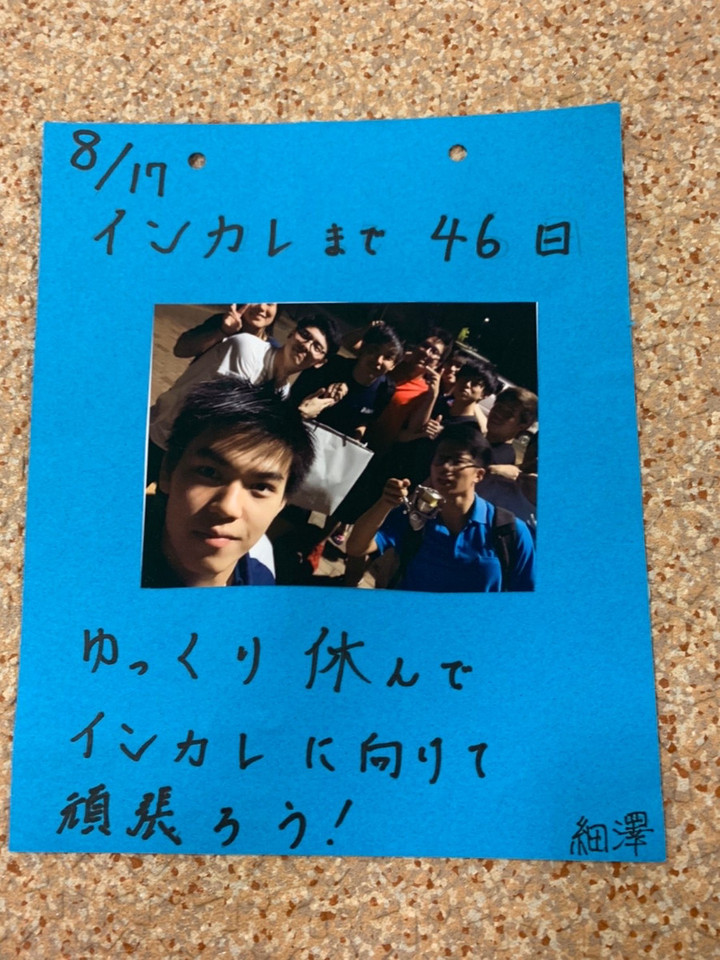 8/17
インカレまで 46日
ゆっくり休んで
インカレに向けて
頑張ろう!
細澤